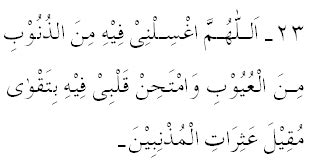 ٢٣ـ اَللّٰهُمَّ اغْسِلْنِىْ فِيْهِ مِنَ الذُنُوْبِ
مِنَ الْعُيُوْبِ وَامْتَحِنْ قَلْبِىْ فِيْهِ بِتَقْوٰى
مُقِيْلَ عَثِرَاتِ الْمُذْنِبِيْنَ۔